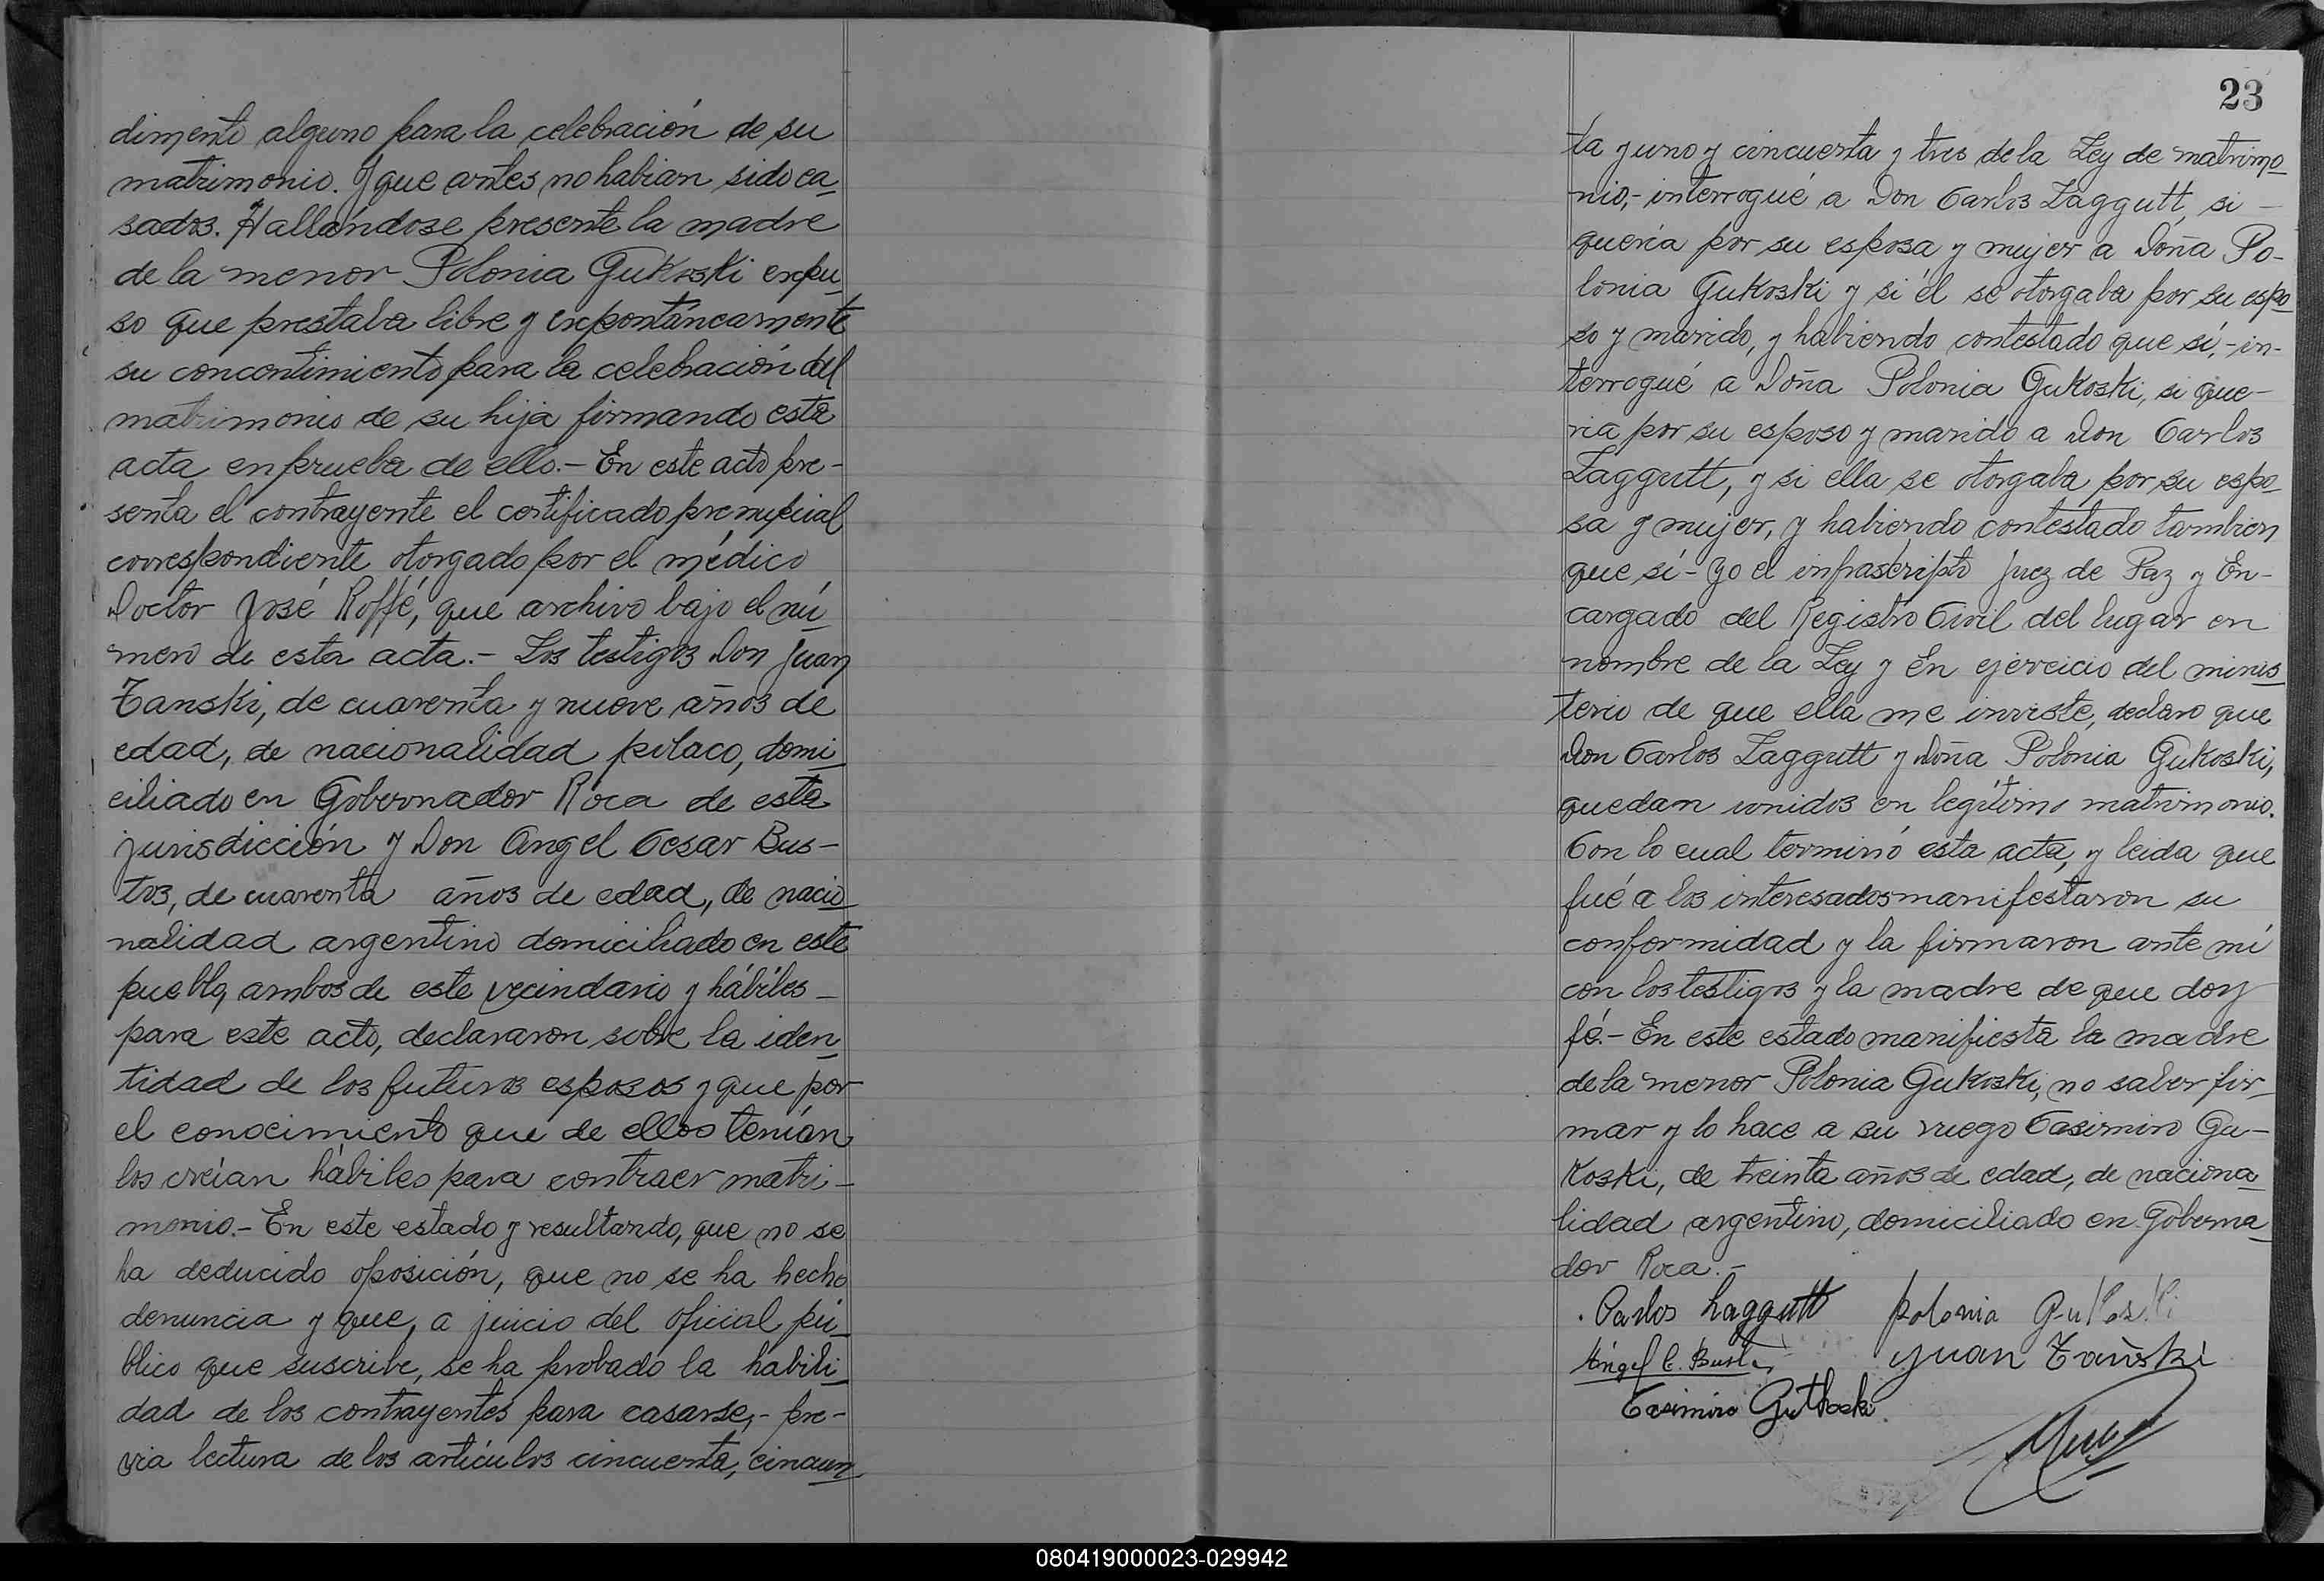 dimento alguno para la celebración de su
matrimonio. Y que antes no habian sido ca_
sados. Hallándose presente la madre
de la menor Polonia Gukoski expu_
so que prestaba libre y expontáneamente
su concentimiento para la celebración del
matrimonio de su hija firmando esta
acta en prueba de ello.- En este acto pre-
senta el contrayente el certificado prenupcial
correspondiente otorgado por el médico
Doctor José Roffé, que archivo bajo el nú_
mero de esta acta.- Los testigos Don Juan
Tanski, de cuarenta y nueve años de
edad, de nacionalidad polaco, domi_
ciliado en Gobernador Roca de esta
jurisdicción y Don Angel Cesar Bus-
tos, de cuarenta años de edad, de nacio_
nalidad argentino domiciliado en este
pueblo, ambos de este vecindario y hábiles -
para este acto, declararon sobre la iden_
tidad de los futuros esposos y que por
el conocimiento que de ellos tenían
los creían hábiles para contraer matri-
monio.- En este estado y resultando, que no se
ha deducido oposición, que no se ha hecho
denuncia y que, a juicio del oficial pú_
blico que suscribe, se ha probado la habili_
dad de los contrayentes para casarse,- pre-
via lectura de los artículos cincuenta, cincuen_
23
ta y uno y cincuenta y tres de la Ley de matrimo_
nio,- interrogué a Don Carlos Laggutt, si -
quería por su esposa y mujer a Doña Po-
lonia Gukoski y si él se otorgaba por su espo_
so y marido, y habiendo contestado que sí,- in-
terrogué a Doña Polonia Gukoski, si que-
ria por su esposo y marido a Don Carlos
Laggutt, y si ella se otorgaba por su espo_
sa y mujer, y habiendo contestado tambien
que sí- yo el infrascripto Juez de Paz y En-
cargado del Registro Civil del lugar en
nombre de la Ley y En ejercicio del minis_
terio de que ella me inviste, declaro que
Don Carlos Laggutt y Doña Polonia Gukoski,
quedan unidos en legítimo matrimonio.
Con lo cual terminó esta acta, y leida que
fué a los interesados manifestaron su
conformidad y la firmaron ante mí
con los testigos y la madre de que doy
fé.- En este estado manifiesta la madre
de la menor Polonia Gukoski, no saber fir_
mar y lo hace a su ruego Casimiro Gu-
koski, de treinta años de edad, de naciona_
lidad argentino, domiciliado en Goberna_
dor Roca.-
Carlos Laggutt polonia Gukoski
Angel C. Bustos Juan Tański
Casimiro Guthoski
080419000023-029942